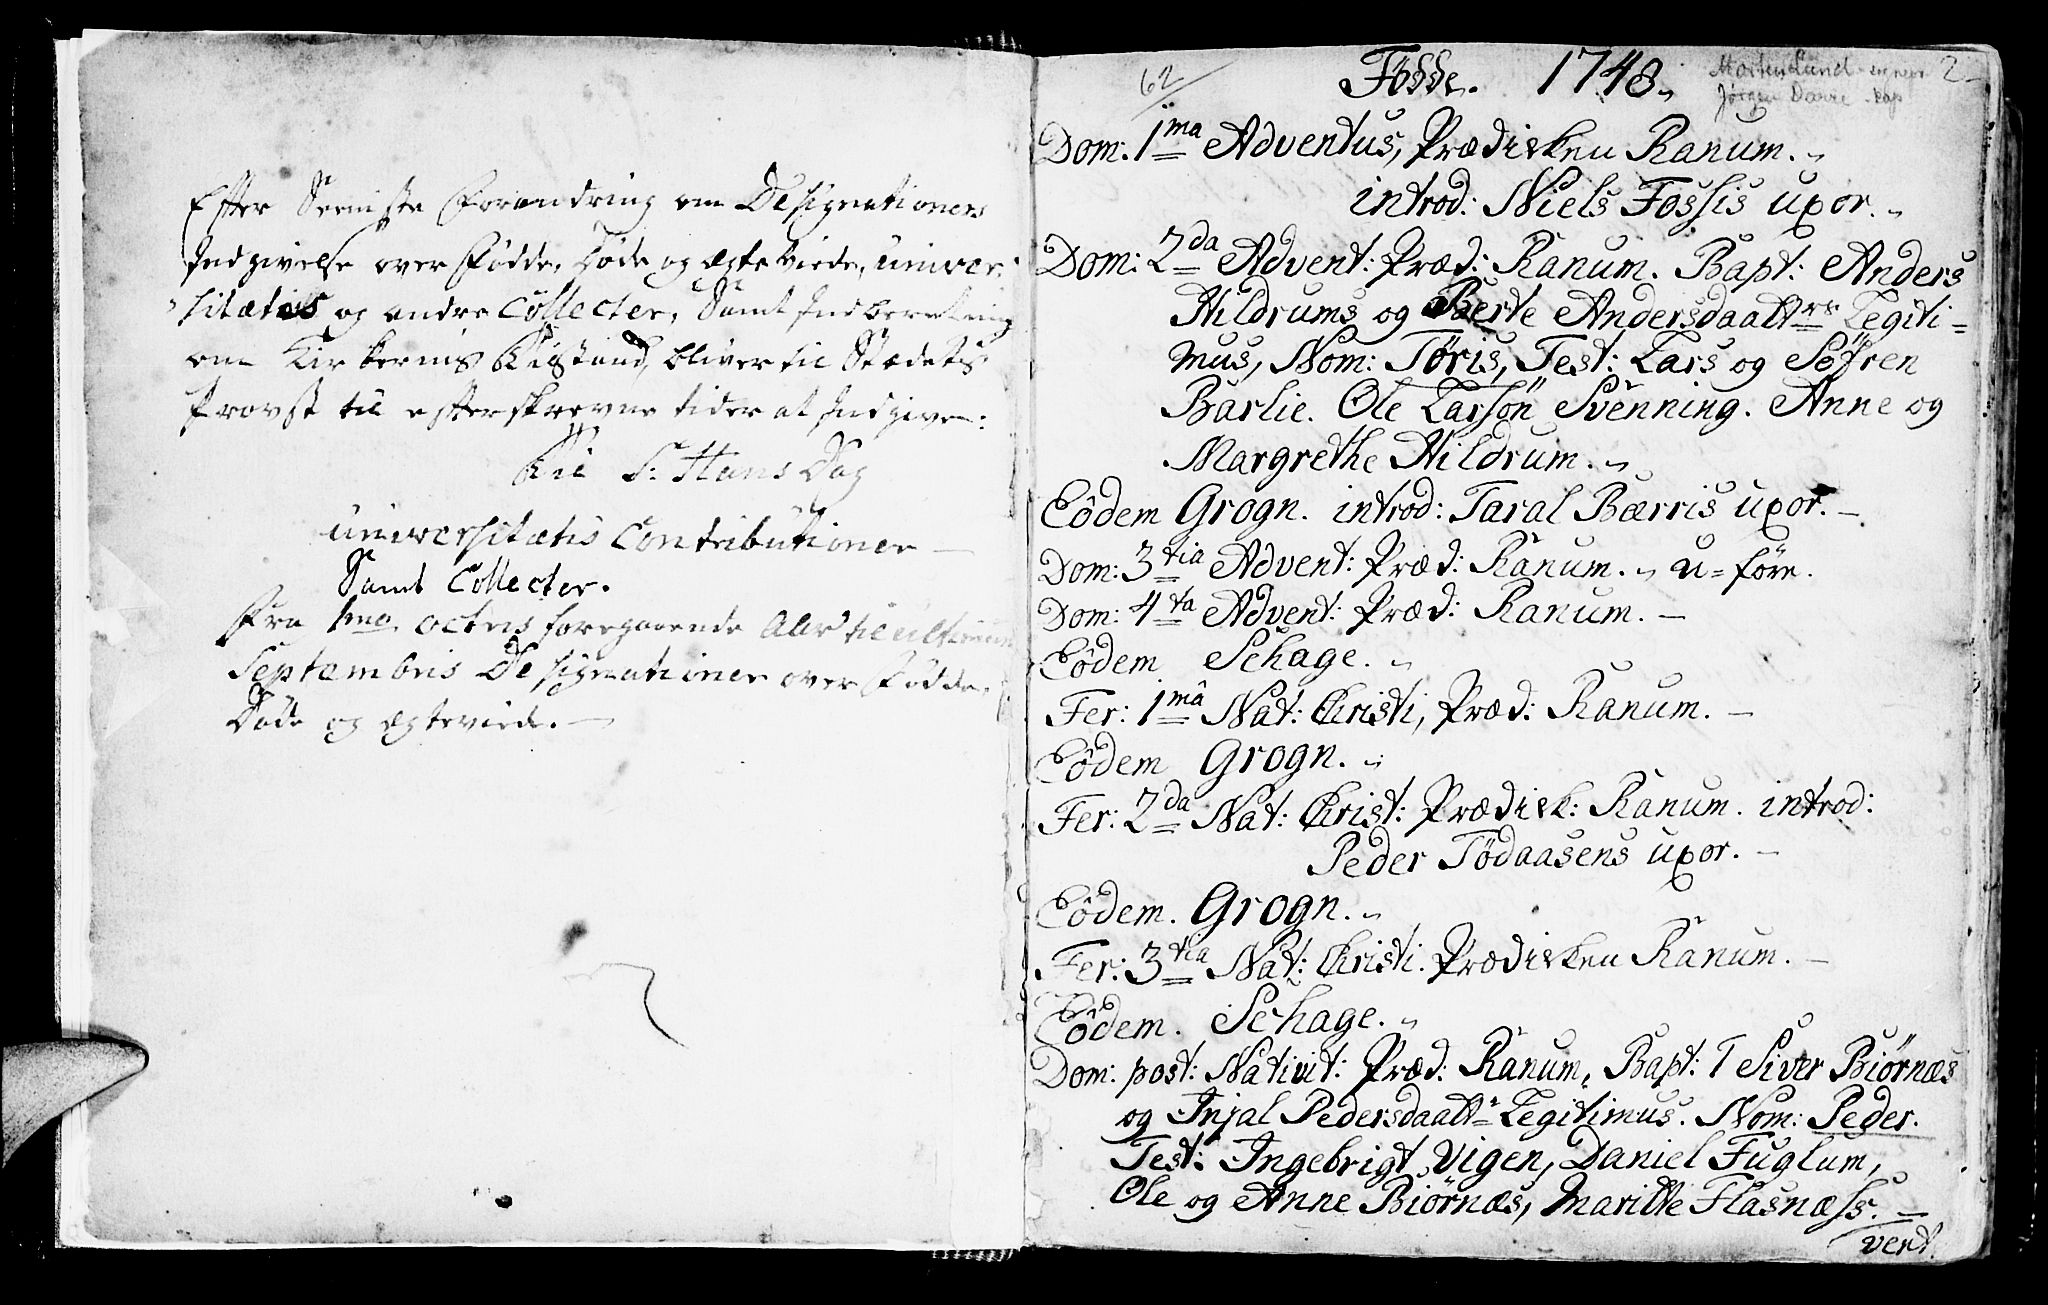 Efter Seeniste Forandring om Designationers
Indgivelse over Fødde, Døde og Ægte Viede, univer-
sitætets og andre Collecter, Samt Indberetning
om Kirkernis Tilstand, bliver til Stædets
Provst til efterskrevne tider at Indgives:
Til S: Hans Dag
universitætis Contributioner —
Samt Collecter.
Fra 1ma octbris foregaaende Aar til ultimum
Septembris Designationer over Fødde,
Døde og Ægteviede. —
62 Fødde. 1748. Morten Lund 2
Jørgen Darre kap
Dom: 1ma Adventus, Prædicken Ranum.
introd: Niels Fossiis uxor.
Dom: 2da Advent: Præd: Ranum. Bapt: Anders
Hildrums og Berte Andersdaattrs Legiti=
mus, Nom: Töris, Test: Lars og Söfren
Barlie. Ole Larssön Svenning. Anne og
Margrethe Hildrum.
Eôdem Grogn. introd: Taral Bærris uxor. —
Dom: 3tia Advent: Præd: Ranum. u=före.
Dom: 4ta Advent: Præd: Ranum. —
Eôdem Sehage.
Fer: 1mâ Nat: Christi, Præd: Ranum. —
Eôdem Grogn.
Fer: 2da Nat: Christ: Prædick: Ranum. introd:
Peder Tödaasens uxor. —
Eôdem. Grogn.
Fer: 3tia Nat: Christi. Prædicken Ranum. —
Eôdem. Sehage.
Dom: post: Nativit: Præd: Ranum, Bapt: T Siver Biörnæs
og Injal Pedersdaattr Legitimus. Nom: Peder.
Test: Ingebrigt Vigen, Daniel Fuglum,
Ole og Anne Biörnæs, Maritte Flasnæss. —
vert